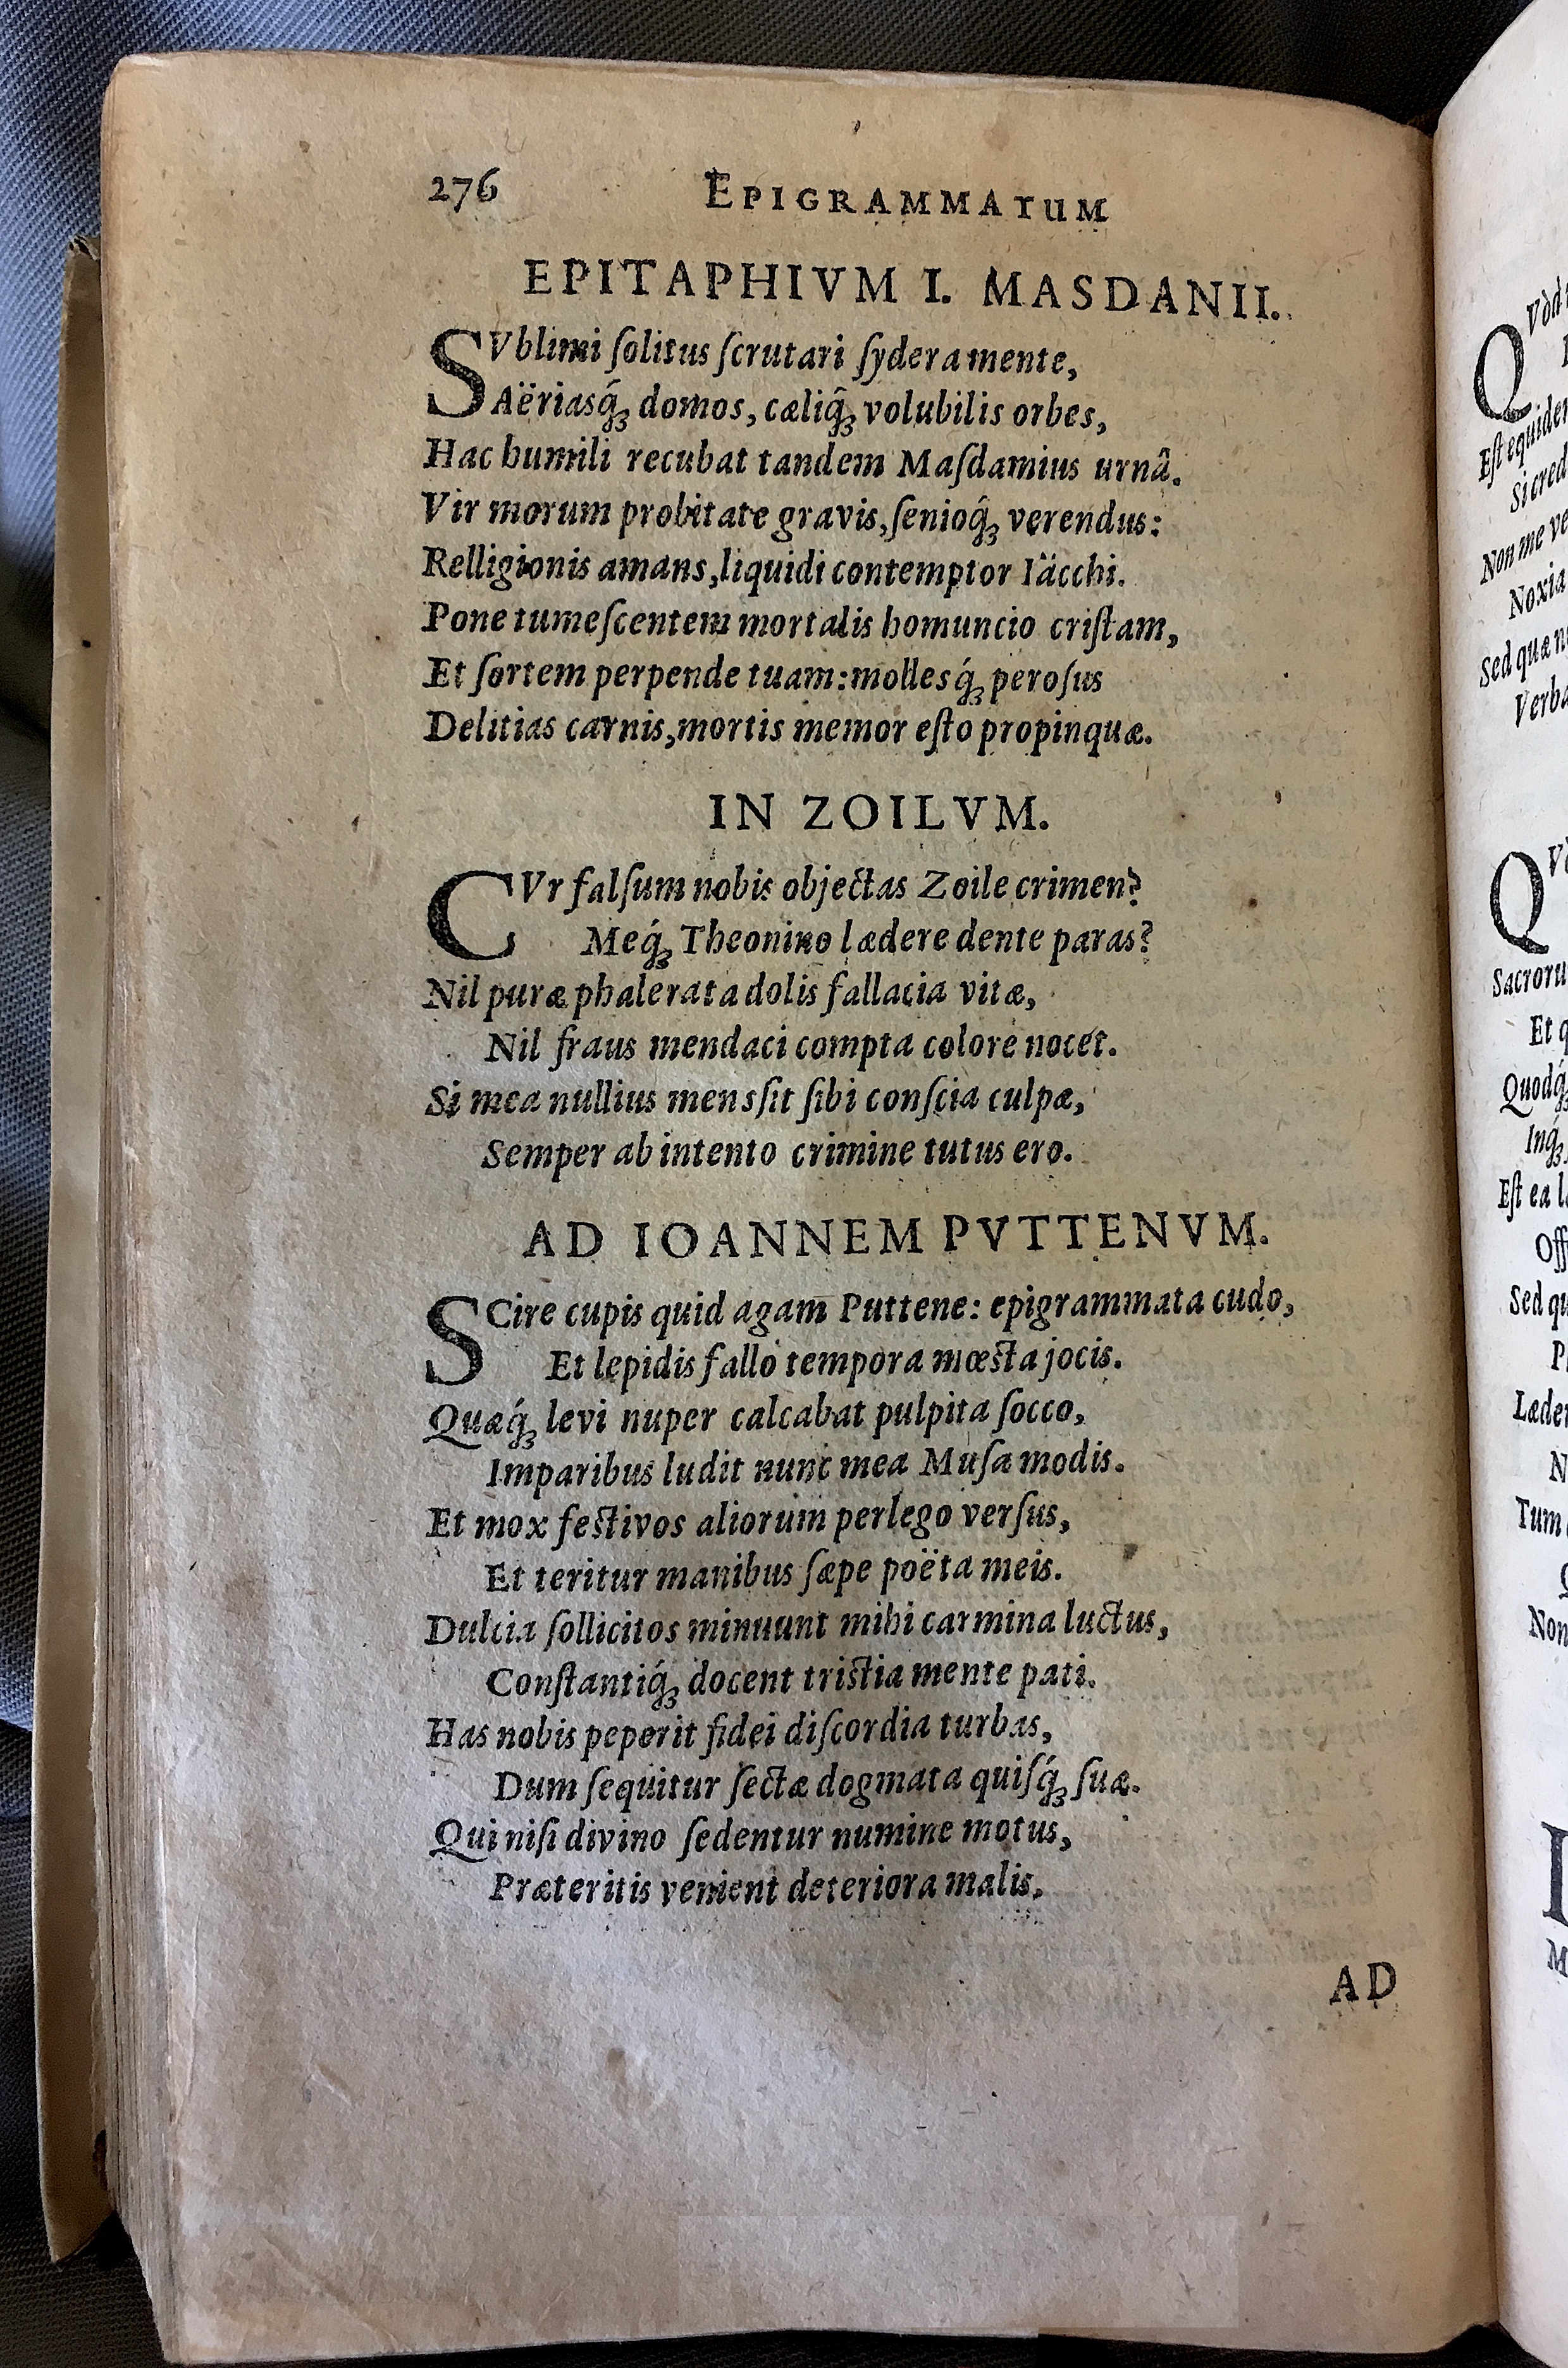 276 EPIGRAMMATUM
EPITAPHIVM I. MASDANII.
SVblimi ſolitus ſcrutari ſydera mente,
Aëriasq́ꝫ domos, cæliq̃ꝫ volubilis orbes,
Hac humili recubat tandem Maſdamius urnâ.
Vir morum probitate gravis, ſenioq́ꝫ verendus:
Relligionis amans, liquidi contemptor Iäcchi.
Pone tumeſcentem mortalis homuncio criſtam,
Et ſortem perpende tuam: mollesq́ꝫ peroſus
Delitias carnis, mortis memor eſto propinquæ.
IN ZOILVM.
CVr falſum nobis objectas Zoile crimen?
Meq́ꝫ Theonino lædere dente paras?
Nil puræ phalerata dolis fallacia vitæ,
Nil fraus mendaci compta colore nocet.
Si mea nullius mens ſit ſibi conſcia culpæ,
Semper ab intento crimine tutus ero.
AD IOANNEM PVTTENVM.
SCire cupis quid agam Puttene: epigrammata cudo,
Et lepidis fallo tempora mœſta jocis.
Quæq́ꝫ levi nuper calcabat pulpita ſocco,
Imparibus ludit nunc mea Muſa modis.
Et mox feſtivos aliorum perlego verſus,
Et teritur manibus ſæpe poëta meis.
Dulcia ſollicitos minuunt mihi carmina luctus,
Conſtantiq́ꝫ docent triſtia mente pati.
Has nobis peperit fidei diſcordia turbas,
Dum ſequitur ſectæ dogmata quiſq́ꝫ ſuæ.
Qui niſi divino ſedentur numine motus,
Præteritis venient deteriora malis.
AD